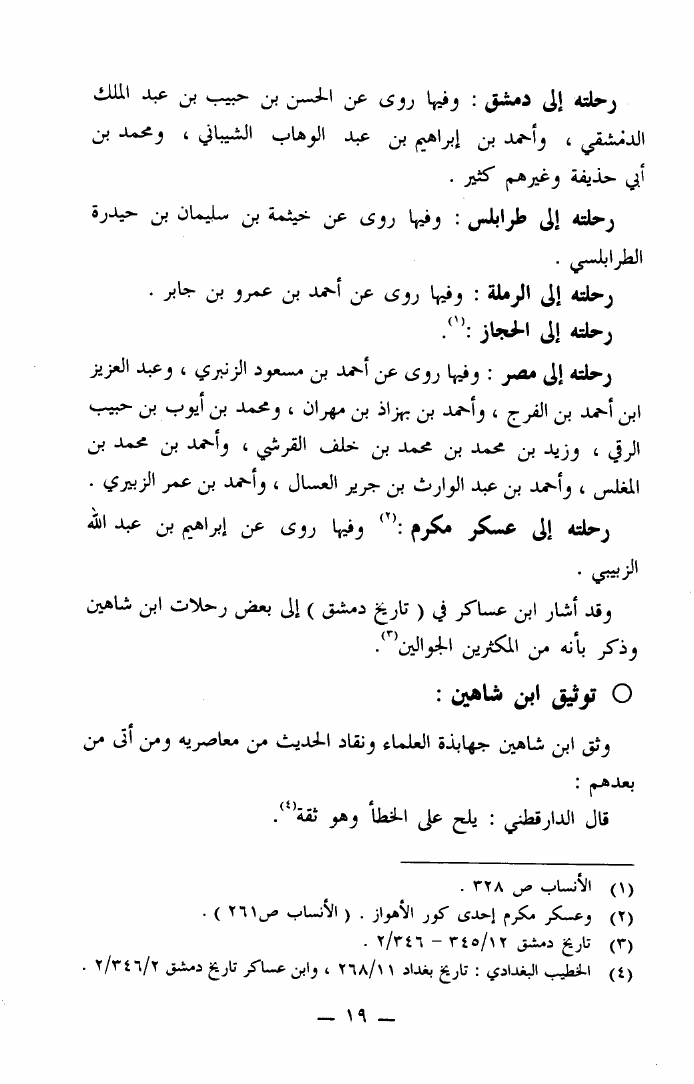 رحلته إلى دمشق : وفيها روى عن الحسن بن حبيب بن عبد الملك
الدمشقي ، وأحمد بن إبراهيم بن عبد الوهاب الشيباني ، ومحمد بن
أبي حذيفة وغيرهم كثير .
رحلته إلى طرابلس : وفيها روى عن خيثمة بن سليمان بن حيدرة
الطرابلسي .
رحلته إلى الرملة : وفيها روى عن أحمد بن عمرو بن جابر .
رحلته إلى الحجاز :(١).
رحلته إلى مصر : وفيها روى عن أحمد بن مسعود الزنبري ، وعبد العزيز
ابن أحمد بن الفرج ، وأحمد بن بهزاذ بن مهران ، ومحمد بن أيوب بن حبيب
الرقي ، وزيد بن محمد بن محمد بن خلف القرشي ، وأحمد بن محمد بن
المغلس ، وأحمد بن عبد الوارث بن جرير العسال ، وأحمد بن عمر الزبيري .
رحلته إلى عسكر مكرم :(٢) وفيها روى عن إبراهيم بن عبد الله
الزبيبي .
وقد أشار ابن عساكر في ( تاريخ دمشق ) إلى بعض رحلات ابن شاهين
وذكر بأنه من المكثرين الجوالين(٣).
○ توثيق ابن شاهين :
وثق ابن شاهين جهابذة العلماء ونقاد الحديث من معاصريه ومن أتى من
بعدهم :
قال الدارقطني : يلح على الخطأ وهو ثقة(٤).
(١) الأنساب ص ٣٢٨ .
(٢) وعسكر مكرم إحدى كور الأهواز . ( الأنساب ص٢٦١ ) .
(٣) تاريخ دمشق ٣٤٥/١٢ – ٢/٣٤٦ .
(٤) الخطيب البغدادي : تاريخ بغداد ٢٦٨/١١ ، وابن عساكر تاريخ دمشق ٢/٣٤٦/٢ .
– ١٩ –